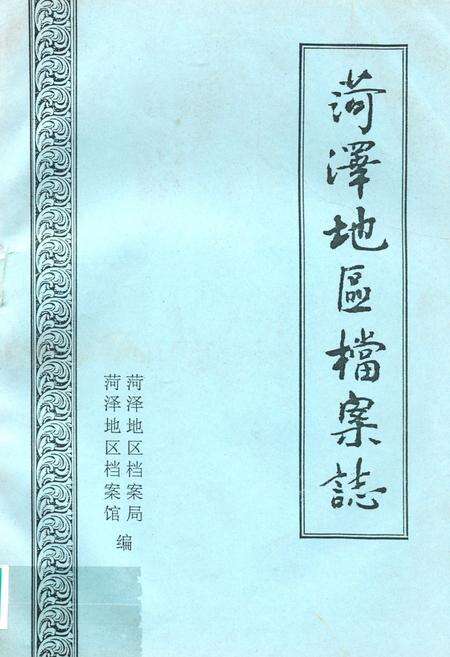 菏澤地區檔案誌
菏泽地区档案局
菏泽地区档案馆
编